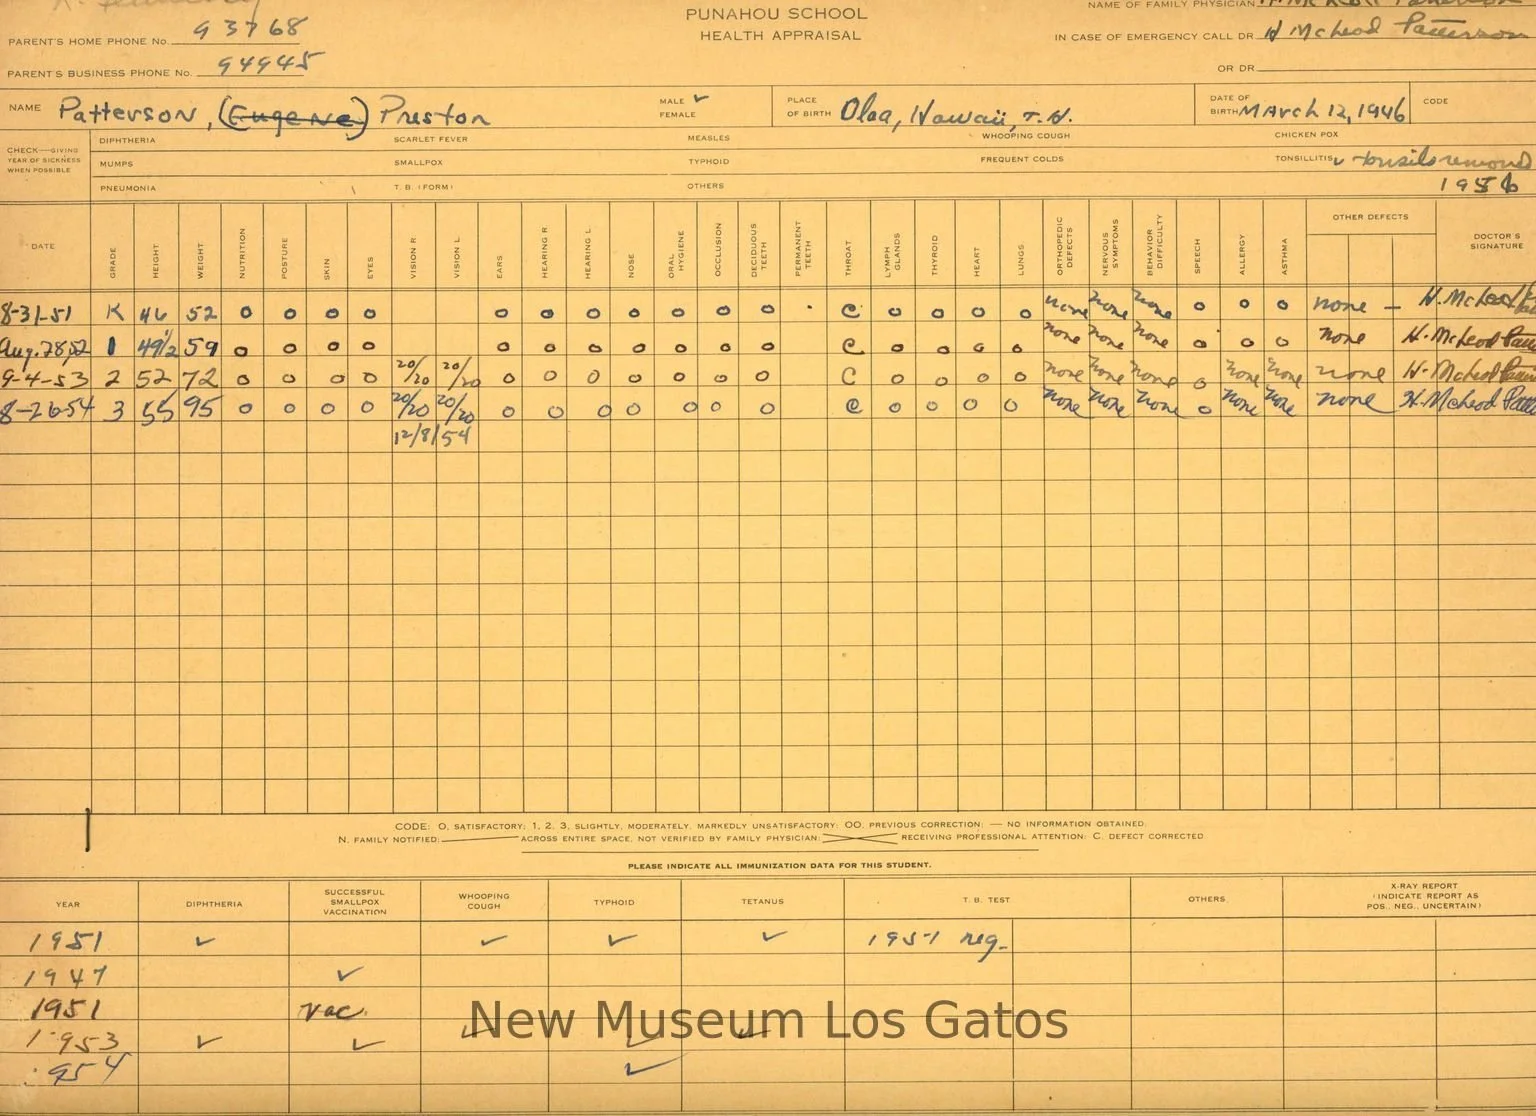 PUNAHOU SCHOOL
HEALTH APPRAISAL
NAME OF FAMILY PHYSICIAN
PARENT'S HOME PHONE No. 93768
IN CASE OF EMERGENCY CALL DR. H McLeod Patterson
PARENT'S BUSINESS PHONE No. 94945
OR DR.
NAME Patterson, (Eugene) Preston MALE ✓ FEMALE PLACE OF BIRTH Olaa, Hawaii, T.H. DATE OF BIRTH March 12, 1946 CODE
CHECK—GIVING YEAR OF SICKNESS WHEN POSSIBLE
DIPHTHERIA SCARLET FEVER MEASLES WHOOPING COUGH CHICKEN POX
MUMPS SMALLPOX TYPHOID FREQUENT COLDS TONSILLITIS ✓ tonsils removed
PNEUMONIA T. B. (FORM) OTHERS 195
DATE GRADE HEIGHT WEIGHT NUTRITION POSTURE SKIN EYES VISION R VISION L EARS HEARING R HEARING L NOSE ORAL HYGIENE OCCLUSION DECIDUOUS TEETH PERMANENT TEETH THROAT LYMPH GLANDS THYROID HEART LUNGS ORTHOPEDIC DEFECTS NERVOUS SYMPTOMS BEHAVIOR DIFFICULTY SPEECH ALLERGY ASTHMA OTHER DEFECTS DOCTOR'S SIGNATURE
8-31-51 K 46 52 o o o o o o o o o o o C o o o o none none none o o o none — H. McLeod
Aug. 28, 52 1 49 1/2" 59 o o o o o o o o o o o C o o o o none none none o o o none H. McLeod
9-4-53 2 52 72 o o o o 20/20 20/20 o o o o o o o C o o o o none none none o none none none H. McLeod
8-26-54 3 55 95 o o o o 20/20 20/20 o o o o o o o C o o o o none none none o none none none H. McLeod
12/8/54
CODE: O, SATISFACTORY; 1, 2, 3, SLIGHTLY, MODERATELY, MARKEDLY UNSATISFACTORY; OO, PREVIOUS CORRECTION; — NO INFORMATION OBTAINED;
N. FAMILY NOTIFIED; ACROSS ENTIRE SPACE, NOT VERIFIED BY FAMILY PHYSICIAN; RECEIVING PROFESSIONAL ATTENTION; C. DEFECT CORRECTED
PLEASE INDICATE ALL IMMUNIZATION DATA FOR THIS STUDENT.
YEAR DIPHTHERIA SUCCESSFUL SMALLPOX VACCINATION WHOOPING COUGH TYPHOID TETANUS T. B. TEST OTHERS, X-RAY REPORT (INDICATE REPORT AS POS., NEG., UNCERTAIN)
1951 ✓ ✓ ✓ ✓ 1951 neg.
1947 ✓
1951 vac.
1953 ✓ ✓ ✓ ✓ ✓
1954 ✓
New Museum Los Gatos